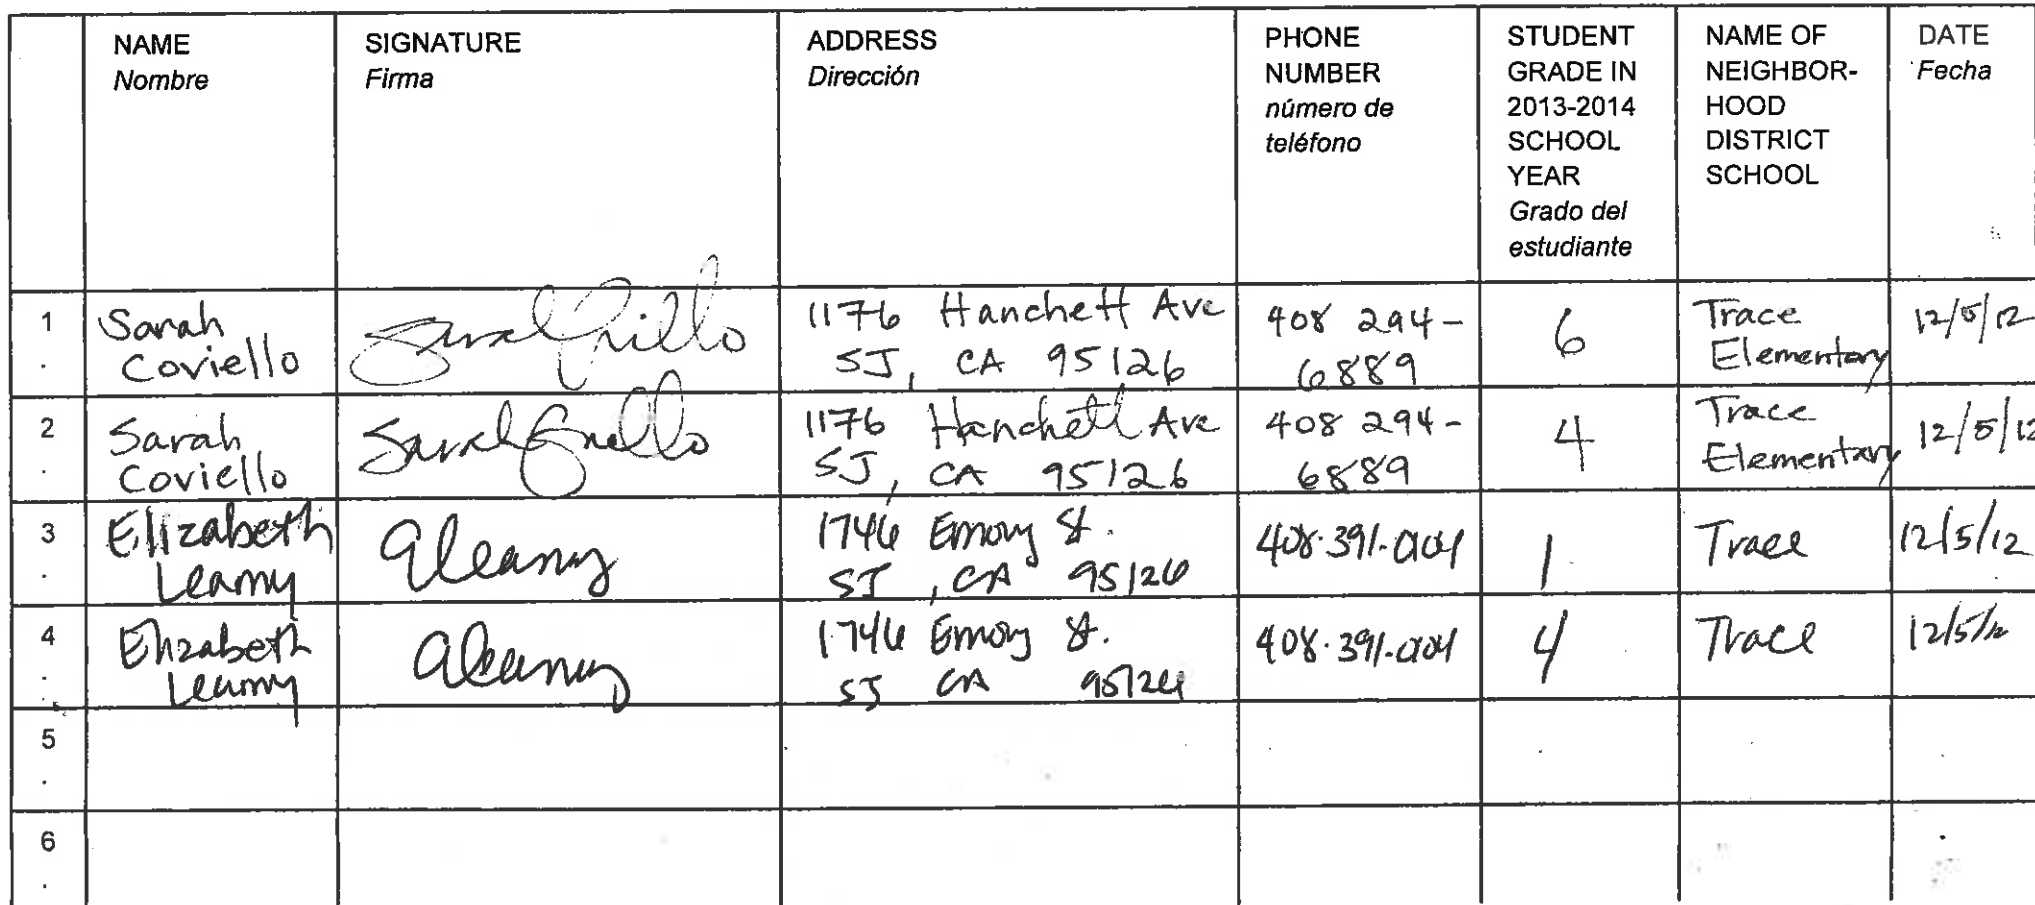 NAME
Nombre
SIGNATURE
Firma
ADDRESS
Dirección
PHONE
NUMBER
número de
teléfono
STUDENT
GRADE IN
2013-2014
SCHOOL
YEAR
Grado del
estudiante
NAME OF
NEIGHBOR-
HOOD
DISTRICT
SCHOOL
DATE
Fecha
1
.
Sarah
Coviello
1176 Hanchett Ave
SJ, CA 95126
408 294-
6889
6
Trace
Elementary
12/5/12
2
.
Sarah
Coviello
1176 Hanchett Ave
SJ, CA 95126
408 294-
6889
4
Trace
Elementary
12/5/12
3
.
Elizabeth
Leamy
1746 Emory St.
SJ, CA 95126
408.391.
1
Trace
12/5/12
4
.
Elizabeth
Leamy
1746 Emory St.
SJ CA 95126
408.391.
4
Trace
12/5/12
5
.
6
.